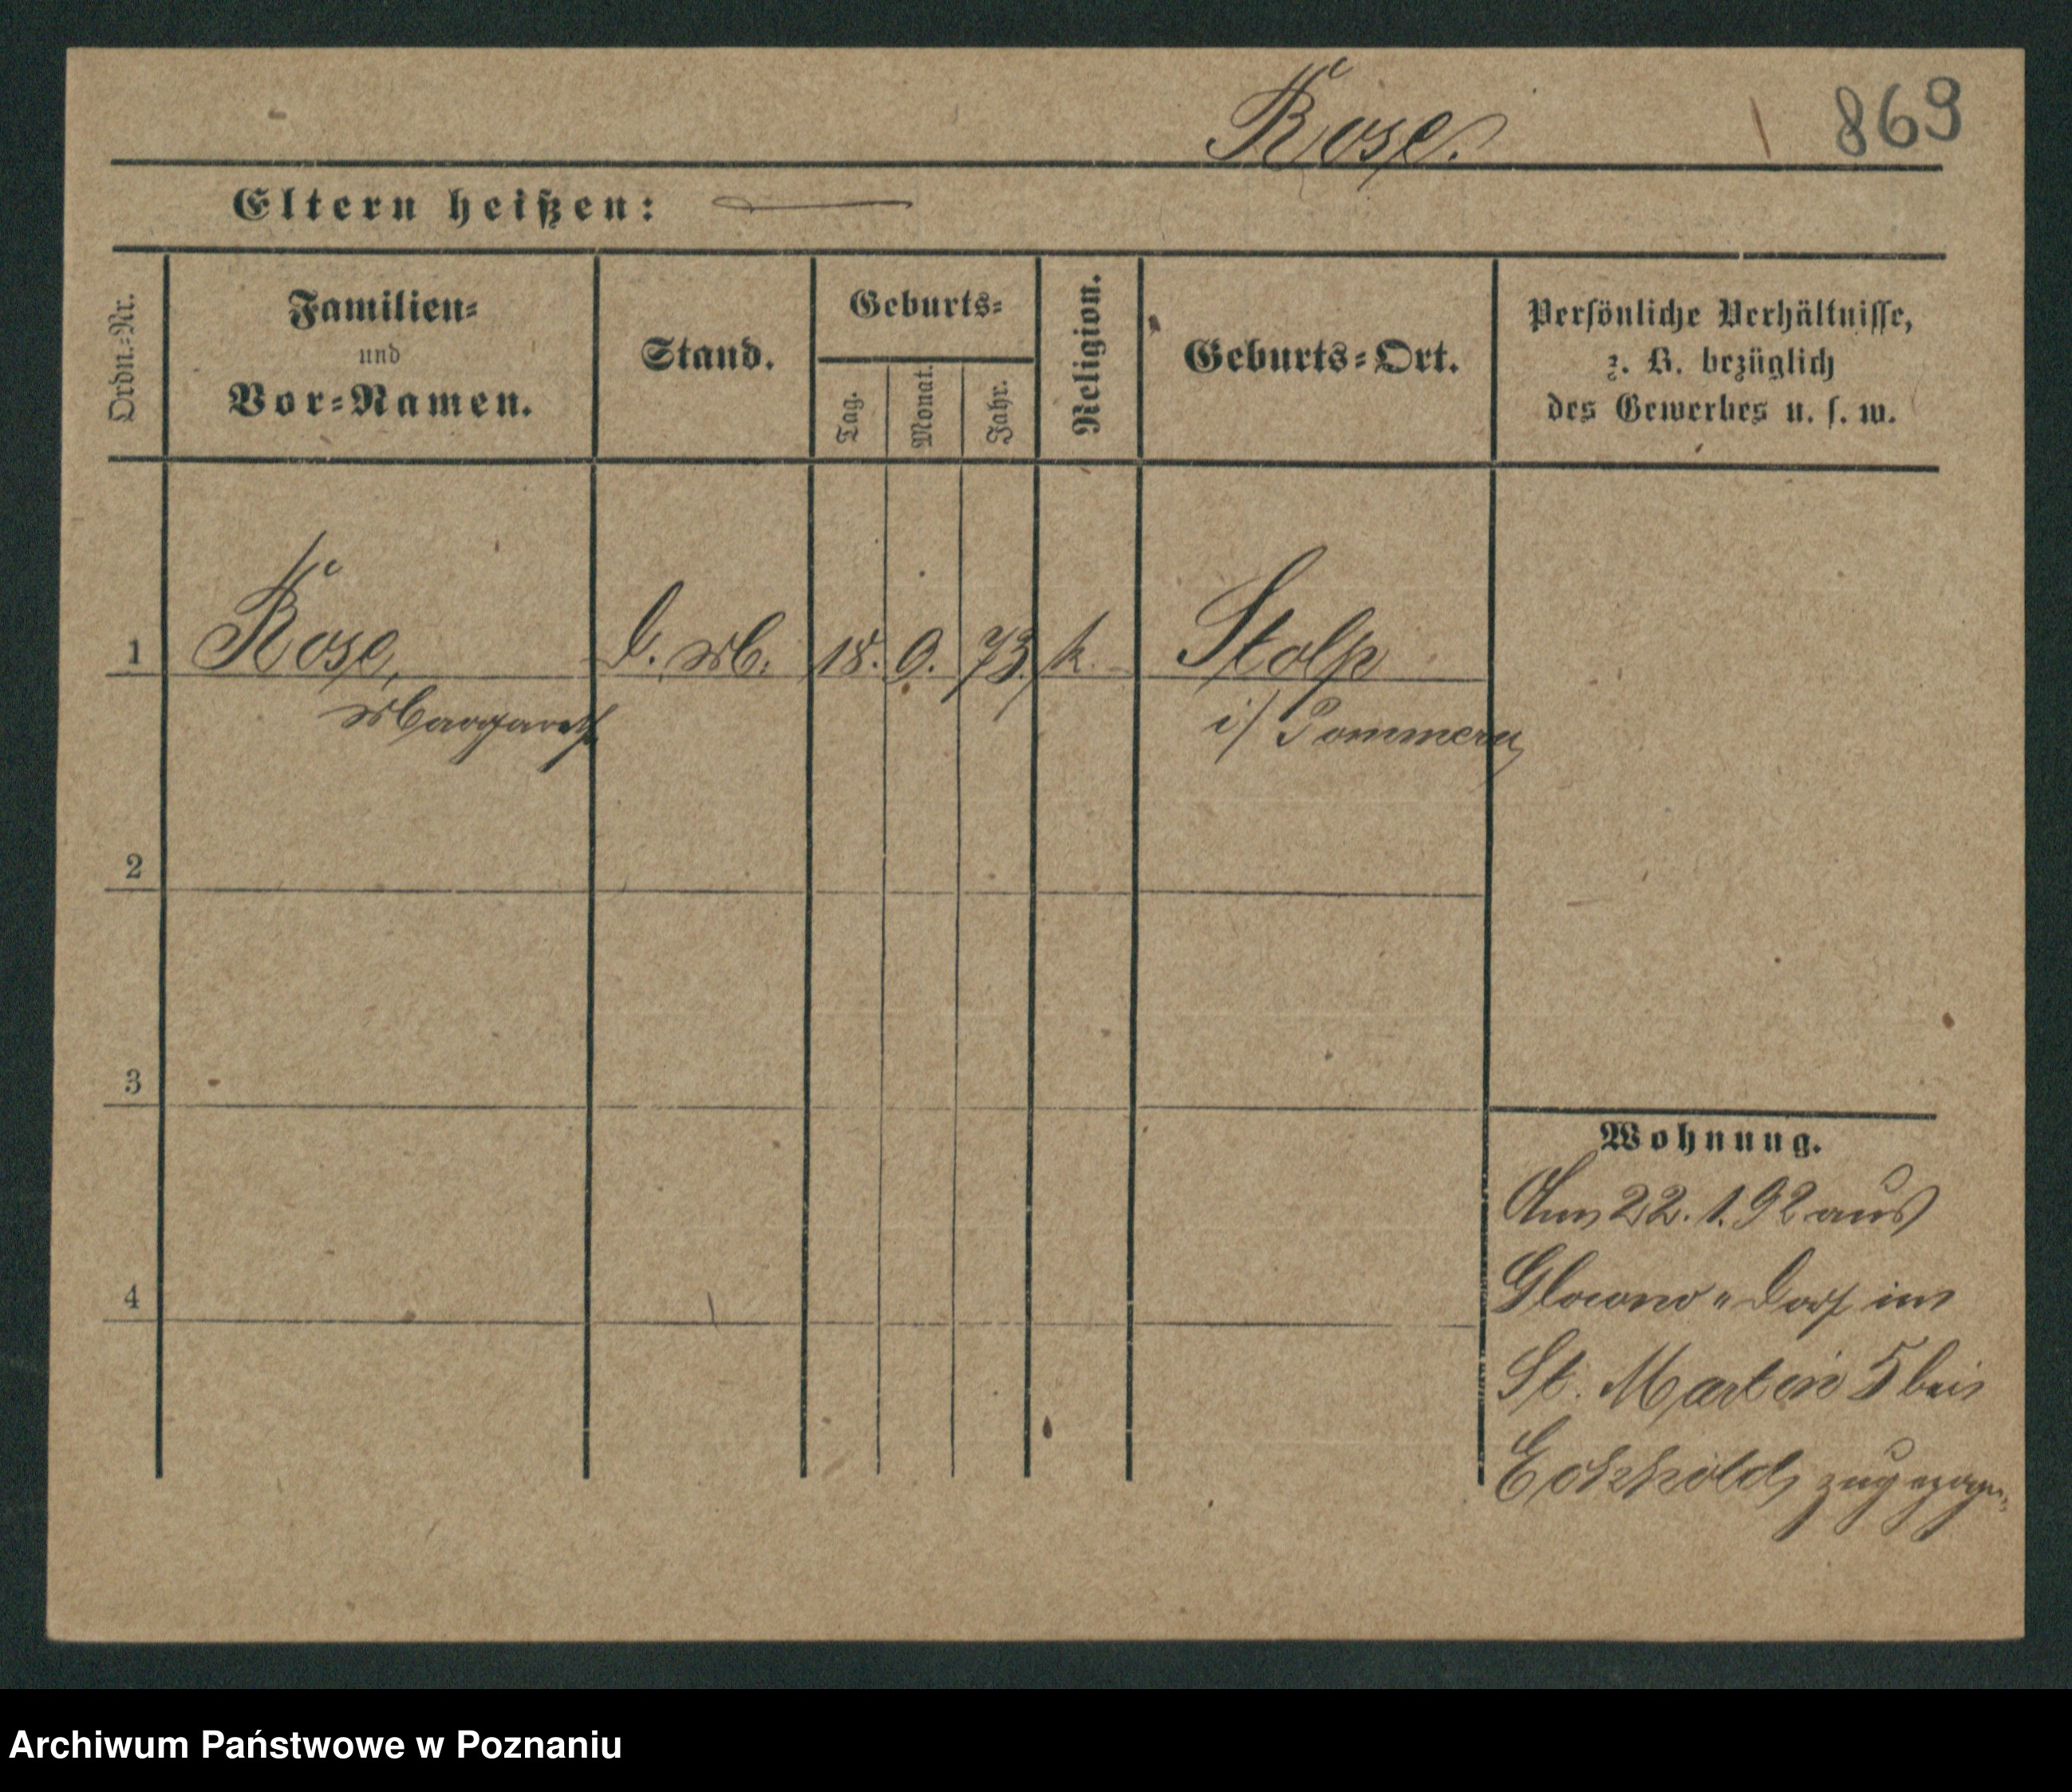 Rose. 869
Eltern heißen: —
Ordn.-Nr.
Familien-
und
Vor-Namen.
Stand.
Geburts-
Tag.
Monat.
Jahr.
Religion.
Geburts-Ort.
Persönliche Verhältnisse,
z. B. bezüglich
des Gewerbes u. s. w.
1 Rose, D. M. 18. 9. 73. k. Stolp
Margareth i/ Pommern
2
3
4
Wohnung.
Am 22. 1. 92 aus
Glowno-Dorf in
St. Martin 5 bei
zugezogen
Archiwum Państwowe w Poznaniu